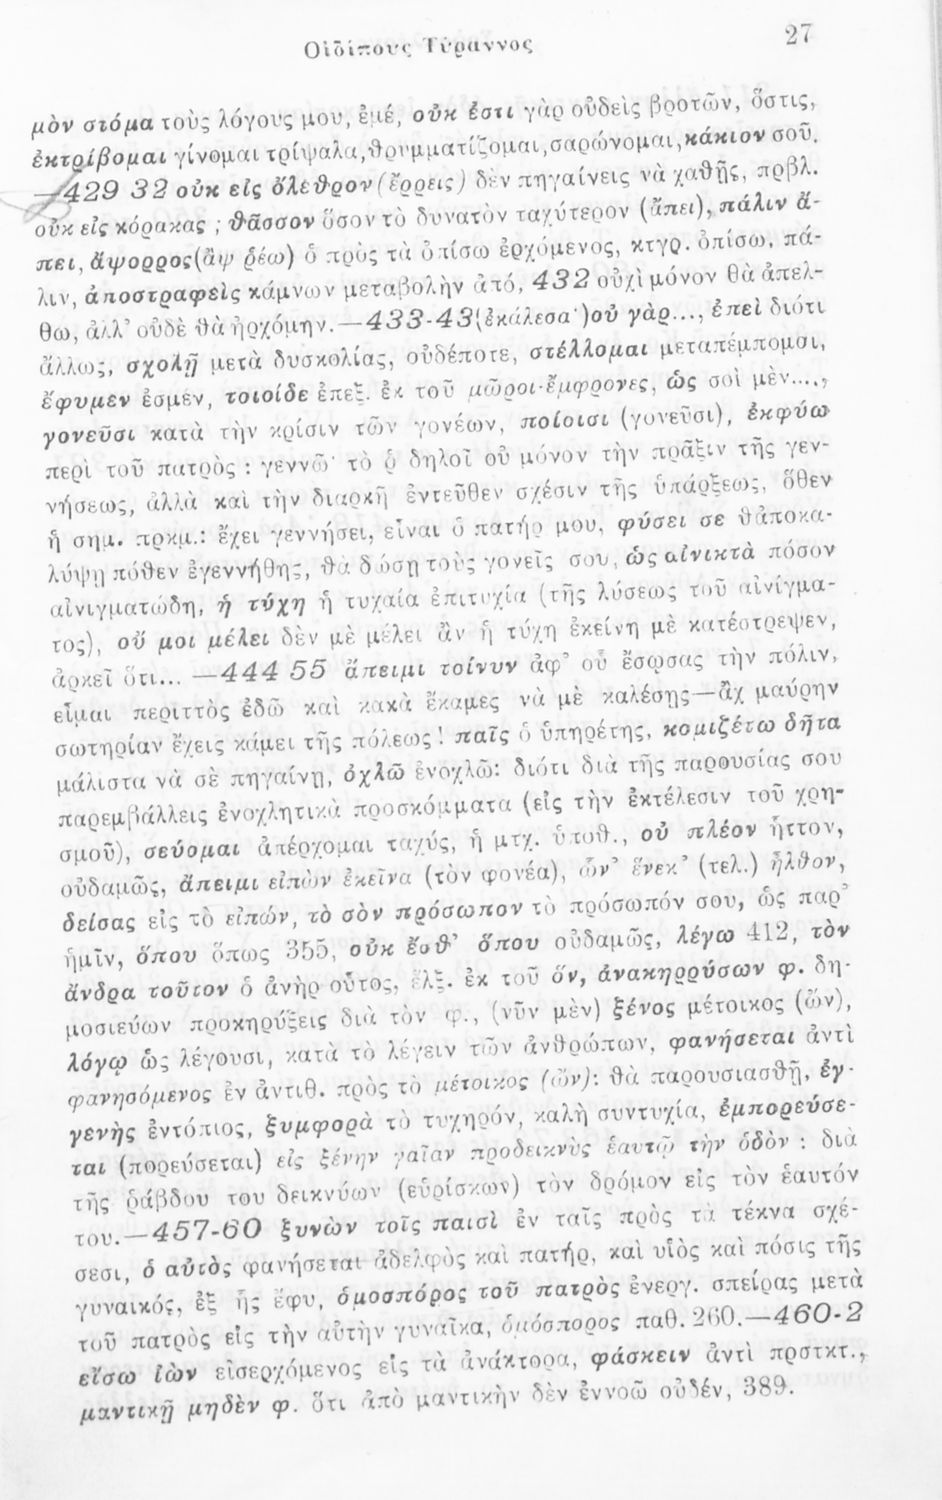 Οἰδίπους Τύραννος
27
μὸν στόμα τοὺς λόγους μου, ἐμέ, οὐκ ἔστι γὰρ οὐδεὶς βροτῶν, ὅστις,
ἐκτρίβομαι γίνομαι τρίψαλα, θρυμματίζομαι, σαρώνομαι, κάκιον σοῦ.
—429 32 οὐκ εἰς ὄλεθρον (ἔρρεις) δὲν πηγαίνεις νὰ χαθῇς, πρβλ.
οὐκ εἰς κόρακας ; θᾶσσον ὅσον τὸ δυνατὸν ταχύτερον (ἄπει), πάλιν ἄ-
πει, ἄψορρος (ἂψ ῥέω) ὁ πρὸς τὰ ὀπίσω ἐρχόμενος, κτγρ. ὀπίσω, πά-
λιν, ἀποστραφεὶς κάμνων μεταβολὴν ἀπό, 432 οὐχὶ μόνον θὰ ἀπελ-
θω, ἀλλ’ οὐδὲ θὰ ἠρχόμην.—433-43 (ἐκάλεσα·) οὐ γὰρ..., ἐπεὶ διότι
ἄλλως, σχολῇ μετὰ δυσκολίας, οὐδέποτε, στέλλομαι μεταπέμπομαι,
ἔφυμεν ἐσμέν, τοιοίδε ἐπεξ. ἐκ τοῦ μῶροι-ἔμφρονες, ὡς σοὶ μὲν....,
γονεῦσι κατὰ τὴν κρίσιν τῶν γονέων, ποίοισι (γονεῦσι), ἐκφύω
περὶ τοῦ πατρὸς : γεννῶ· τὸ ῥ δηλοῖ οὐ μόνον τὴν πρᾶξιν τῆς γεν-
νήσεως, ἀλλὰ καὶ τὴν διαρκῆ ἐντεῦθεν σχέσιν τῆς ὑπάρξεως, ὅθεν
ἡ σημ. πρκμ.: ἔχει γεννήσει, εἶναι ὁ πατήρ μου, φύσει σε θἀποκα-
λύψῃ πόθεν ἐγεννήθης, θὰ δώσῃ τοὺς γονεῖς σου, ὡς αἰνικτὰ πόσον
αἰνιγματώδη, ἡ τύχη ἡ τυχαία ἐπιτυχία (τῆς λύσεως τοῦ αἰνίγμα-
τος), οὔ μοι μέλει δὲν μὲ μέλει ἂν ἡ τύχη ἐκείνη μὲ κατέστρεψεν,
ἀρκεῖ ὅτι... —444 55 ἄπειμι τοίνυν ἀφ’ οὗ ἔσῳσας τὴν πόλιν,
εἶμαι περιττὸς ἐδῶ καὶ κακὰ ἔκαμες νὰ μὲ καλέσῃς—ἂχ μαύρην
σωτηρίαν ἔχεις κάμει τῆς πόλεως! παῖς ὁ ὑπηρέτης, κομιζέτω δῆτα
μάλιστα νὰ σὲ πηγαίνῃ, ὀχλῶ ἐνοχλῶ: διότι διὰ τῆς παρουσίας σου
παρεμβάλλεις ἐνοχλητικὰ προσκόμματα (εἰς τὴν ἐκτέλεσιν τοῦ χρη-
σμοῦ), σεύομαι ἀπέρχομαι ταχύς, ἡ μτχ. ὑποθ., οὐ πλέον ἧττον,
οὐδαμῶς, ἄπειμι εἰπὼν ἐκεῖνα (τὸν φονέα), ὧν’ ἕνεκ’ (τελ.) ἦλθον,
δείσας εἰς τὸ εἰπών, τὸ σὸν πρόσωπον τὸ πρόσωπόν σου, ὡς παρ’
ἡμῖν, ὅπου ὅπως 355, οὐκ ἔσθ’ ὅπου οὐδαμῶς, λέγω 412, τὸν
ἄνδρα τοῦτον ὁ ἀνὴρ οὗτος, ἕλξ. ἐκ τοῦ ὅν, ἀνακηρρύσων φ. δη-
μοσιεύων προκηρύξεις διὰ τὸν φ., (νῦν μὲν) ξένος μέτοικος (ὤν),
λόγῳ ὡς λέγουσι, κατὰ τὸ λέγειν τῶν ἀνθρώπων, φανήσεται ἀντὶ
φανησόμενος ἐν ἀντιθ. πρὸς τὸ μέτοικος (ὤν): θὰ παρουσιασθῇ, ἐγ-
γενὴς ἐντόπιος, ξυμφορὰ τὸ τυχηρόν, καλὴ συντυχία, ἐμπορεύσε-
ται (πορεύσεται) εἰς ξένην γαῖαν προδεικνὺς ἑαυτῷ τὴν ὁδὸν : διὰ
τῆς ῥάβδου του δεικνύων (εὑρίσκων) τὸν δρόμον εἰς τὸν ἑαυτόν
του.—457-60 ξυνὼν τοῖς παισὶ ἐν ταῖς πρὸς τὰ τέκνα σχέ-
σεσι, ὁ αὐτὸς φανήσεται ἀδελφὸς καὶ πατήρ, καὶ υἱὸς καὶ πόσις τῆς
γυναικός, ἐξ ἧς ἔφυ, ὁμοσπόρος τοῦ πατρὸς ἐνεργ. σπείρας μετὰ
τοῦ πατρὸς εἰς τὴν αὐτὴν γυναῖκα, ὁμόσπορος παθ. 260.—460-2
εἴσω ἰὼν εἰσερχόμενος εἰς τὰ ἀνάκτορα, φάσκειν ἀντὶ πρστκτ.,
μαντικῇ μηδὲν φ. ὅτι ἀπὸ μαντικὴν δὲν ἐννοῶ οὐδέν, 389.